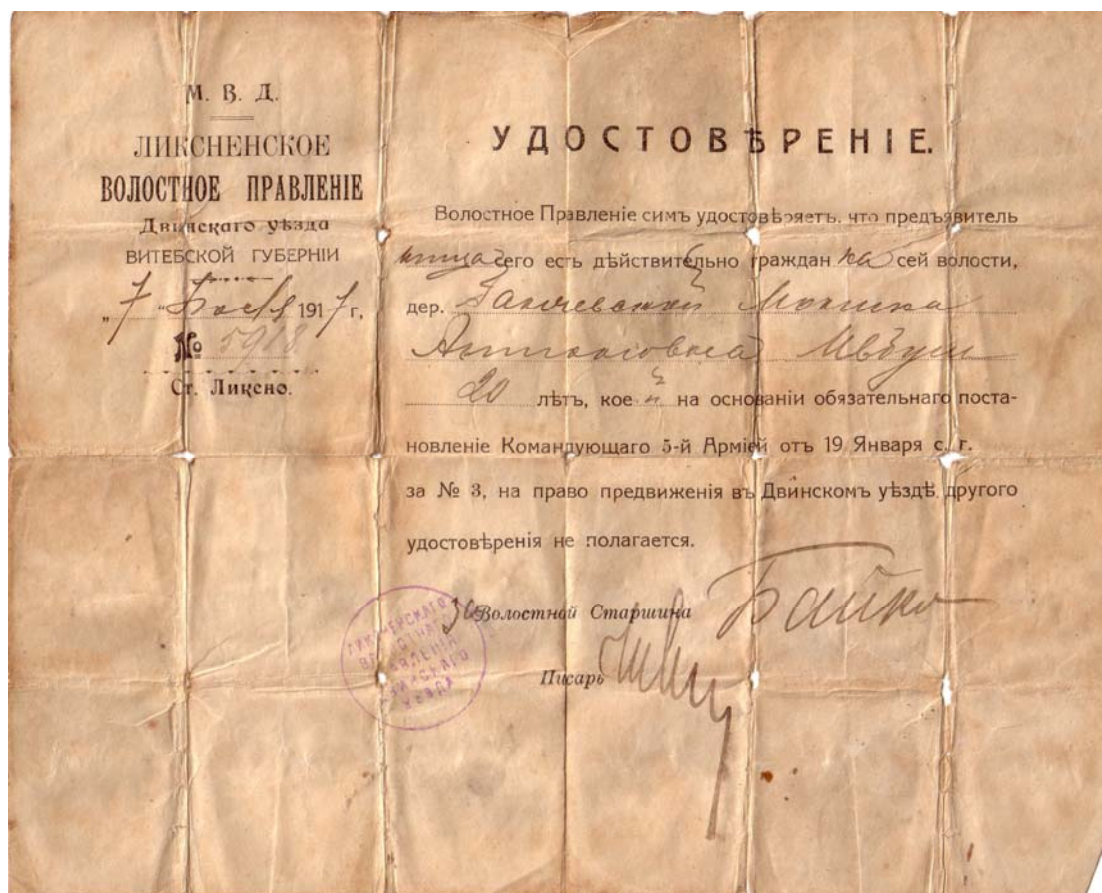 М. В. Д.
ЛИКСНЕНСКОЕ
ВОЛОСТНОЕ ПРАВЛЕНІЕ
Двинскаго уѣзда
ВИТЕБСКОЙ ГУБЕРНІИ
„ 7 " 1917 г,
№ 5918
Ст. Ликсно.
УДОСТОВѢРЕНІЕ.
Волостное Правленіе симъ удостовѣряетъ, что предъявитель
ница сего есть дѣйствительно граждан ка сей волости,
дер.
Антоновна
20 лѣтъ, кое й на основаніи обязательнаго поста-
новленіе Командующаго 5-й Арміей отъ 19 Января с. г.
за № 3, на право предвиженія въ Двинскомъ уѣздѣ другого
удостовѣренія не полагается.
Волостной Старшина Байко
Писарь
ЛИКСНЕНСКАГО
ВОЛОСТНАГО
ПРАВЛЕНІЯ
ДВИНСКАГО
УѢЗДА